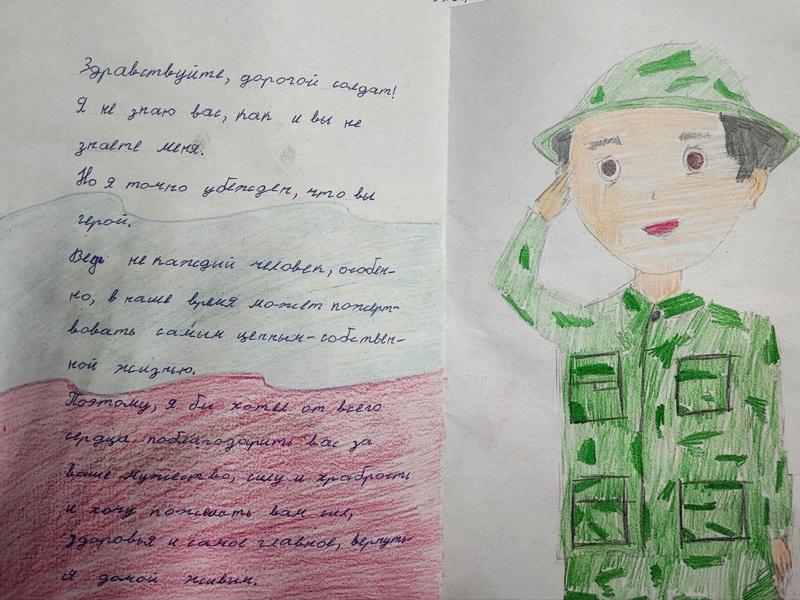 Здравствуйте, дорогой солдат!
Я не знаю вас, как и вы не
знаете меня.
Но я точно убежден, что вы
герой.
Ведь не каждый человек, особен-
но, в наше время может пожерт-
вовать самым ценным-собствен-
ной жизнью.
Поэтому, я бы хотел от всего
сердца поблагодарить вас за
ваше мужество, силу и храбрость
и хочу пожелать вам сил,
здоровья и самое главное, вернуть
ся домой живим.